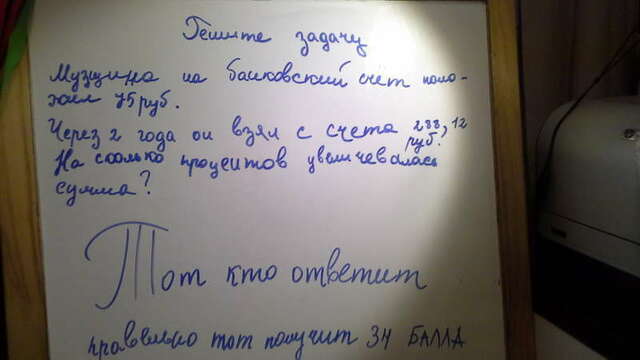 Решите задачу
Музщина на банковский счет поло-
жил 75 руб.
Через 2 года он взял с счета 288,12
руб.
На сколько процентов увеличевалась
сумма?
Тот кто ответит
правельно тот получит 34 БАЛЛА